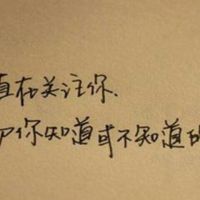 直在关注你.
你知道或不知道的